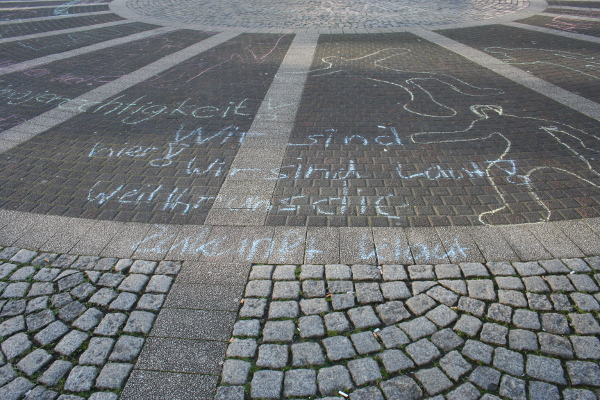 gerächtigkeit
Wir sind
hier, wir sind laut,
Weil ihr uns die
Zukunft klaut